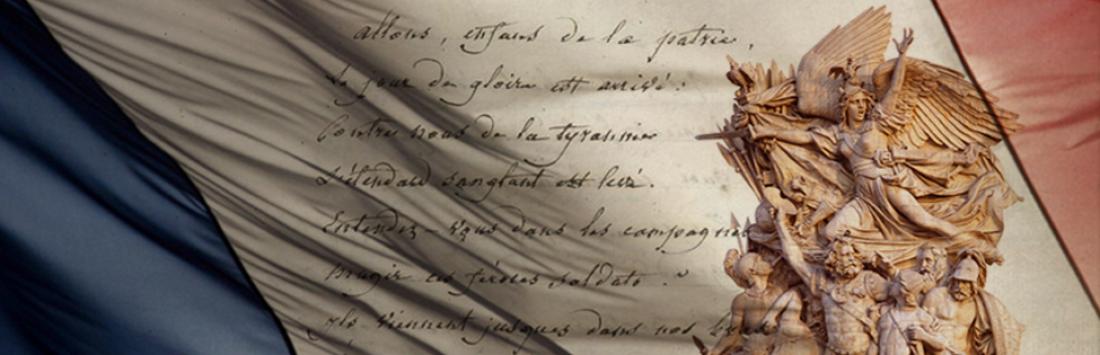 allons, enfans de la patrie,
le jour de gloire est arrivé :
Contre nous de la tyrannie
L'étendard sanglant est levé.
Entendez-vous dans les compagnes
Mugir ces féroces soldats ?
Ils viennent jusques dans nos bras